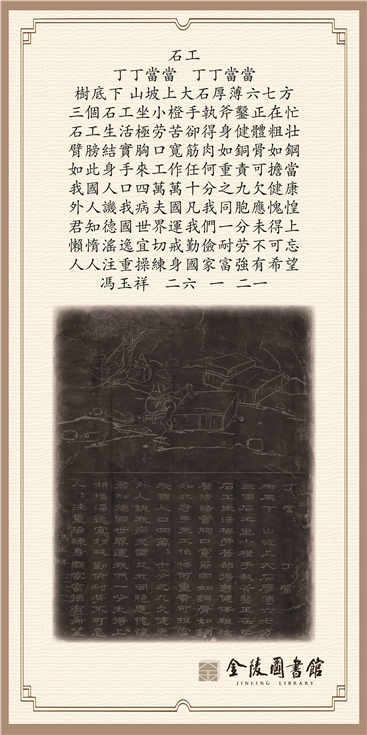 石工
丁丁當當　丁丁當當
樹底下山坡上大石厚薄六七方
三個石工坐小櫈手執斧鑿正在忙
石工生活極勞苦卻得身健體粗壯
臂膀結實胸口寬筋肉如銅骨如鋼
如此身手來工作任何重責可擔當
我國人口四萬萬十分之九欠健康
外人譏我病夫國凡我同胞應愧惶
君知德國世界運我們一分未得上
懶惰滛逸宜切戒勤儉耐勞不可忘
人人注重操練身國家富強有希望
馮玉祥　二六　一　二一
金陵圖書館
JINLING LIBRARY